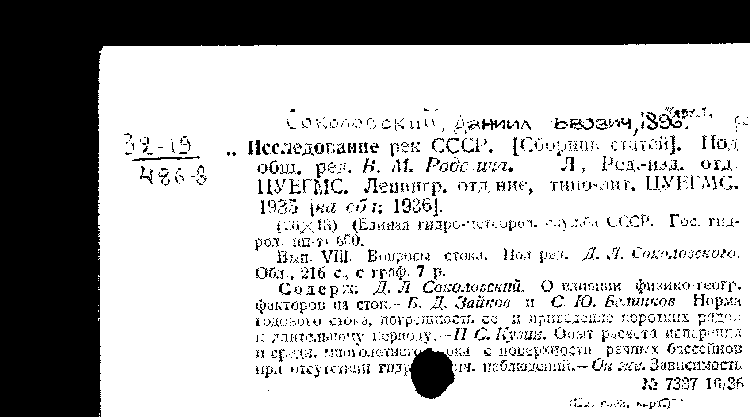 Соколовский, Даниил Львович, 1896
32-19
486-8
Исследование рек СССР. [Сборник статей]. Под
общ. ред. В. М. Родевича. Л, Ред.-изд. отд.
ЦУЕГМС. Ленингр. отд ние, типо-лит. ЦУЕГМС.
1935 [на обл; 1936].
(Единая гидро-метеорол. служба СССР. Гос. гид-
рол. ин-т)
Вып. VIII. Вопросы стока. Под ред. Д. Л. Соколовского.
Обл., 216 с., с граф. 7 р.
Содерж: Д. Л Соколовский. О влиянии физико-геогр.
факторов на сток.- Б. Д. Зайков и С. Ю. Белинков Норма
годового стока, погрешность ее и приведение коротких рядов
к длительному периоду.-П С. Кузин. Опыт расчета испарения
и средн. многолетнего стока с поверхности речных бассейнов
при отсутствии гидр наблюдений.-Он же. Зависимость
№ 7397 10/36